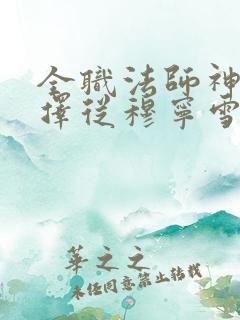 全職法師神
擇從穆寧雪
華之之
未经同意禁止转载